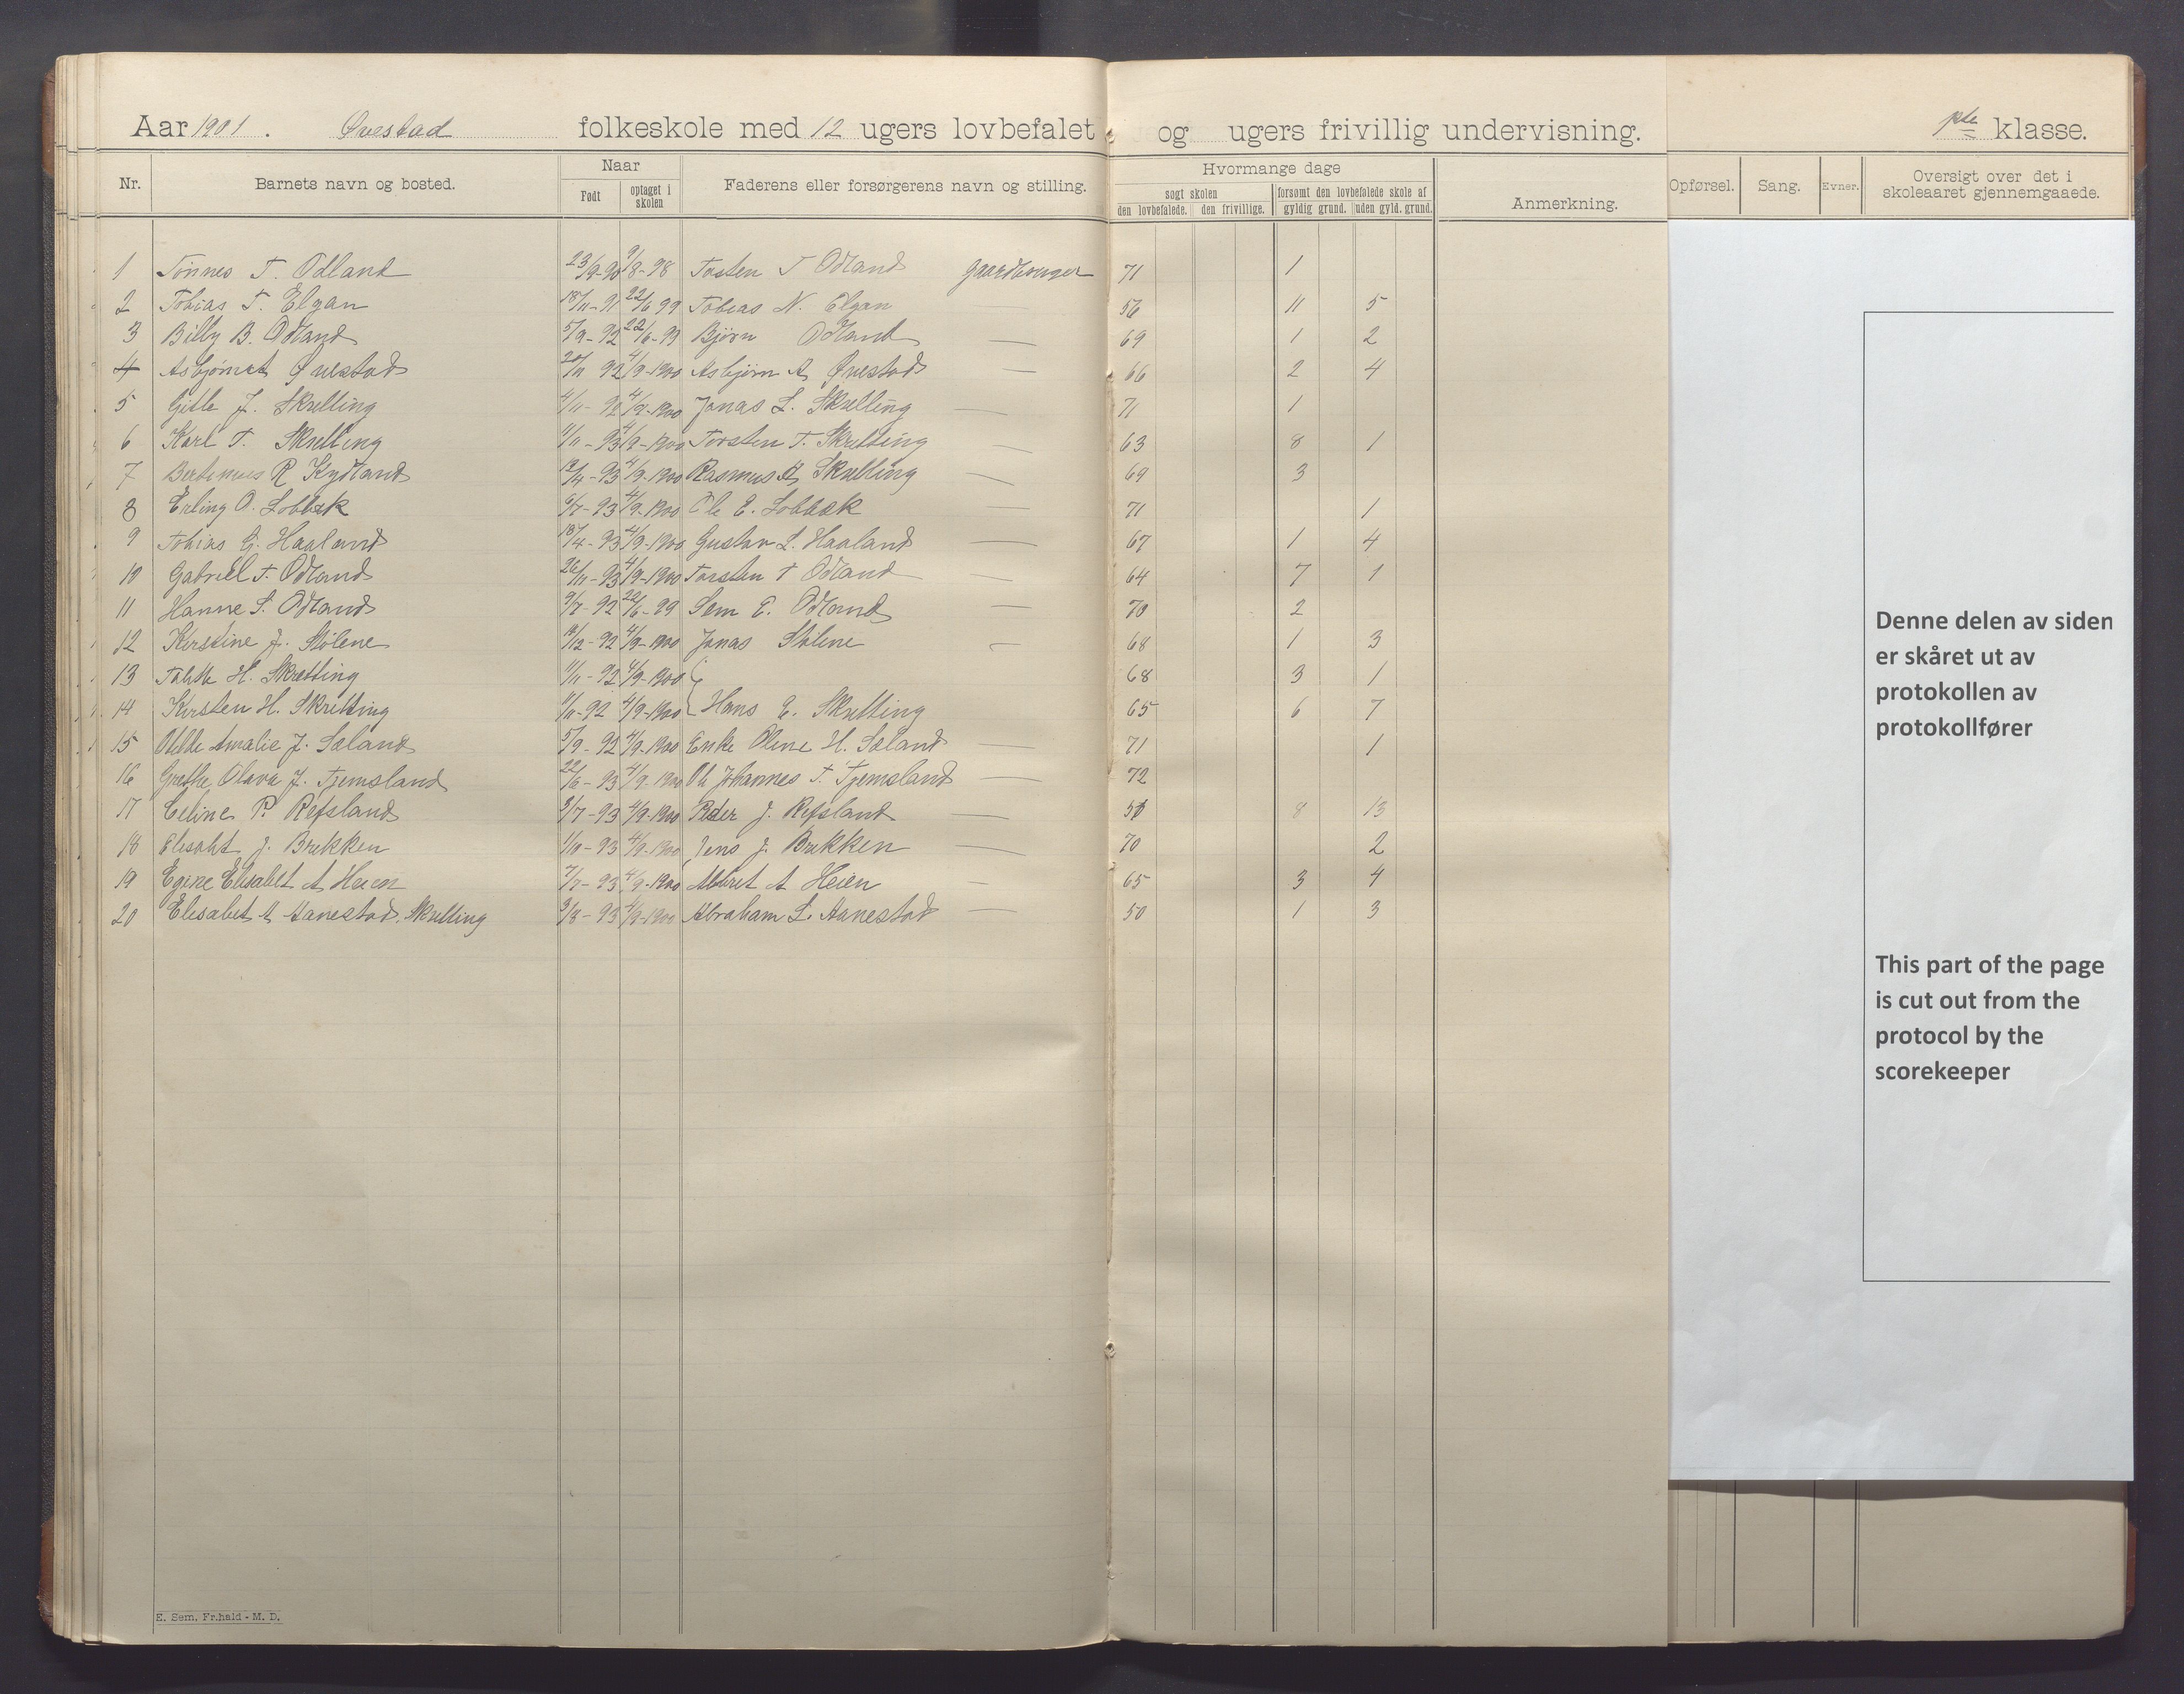 Aar 1901. Øvestad folkeskole med 12 ugers lovbefalet og ugers frivillig undervisning. pte klasse.
Nr. Barnets navn og bosted. Naar Født optaget i skolen Faderens eller forsørgerens navn og stilling. Hvormange dage søgt skolen den lovbefalede. den frivillige. forsømt den lovbefalede skole af gyldig grund. uden gyld. grund. Anmerkning. Opførsel. Sang. Evner. Oversigt over det i skoleaaret gjennemgaaede.
1 Tønnes T. Ødland 23/9-90 9/8-98 Tosten T Ødland Gaardbruger 71 1
2 Tobias T. Elgan 18/11-91 22/6 99 Tobias N. Elgan — 56 11 5
3 Billy B. Ødland 5/9-92 22/6-99 Bjørn Ødland — 69 1 2
4 Øvestad 20/11 92 4/9-1900 Asbjørn A Øvestad — 66 2 4
5 Gitle J. Skretting 4/11-92 4/9-1900 Jonas L. Skretting — 71 1
6 Karl T. Skretting 1/11-93 4/9-1900 Torsten T. Skretting — 63 8 1
7 R Kydland 12/4-93 4/9-1900 Rasmus Skretting — 69 3
8 Erling O. Lobbæk 6/7-93 4/9-1900 Ole E. Lobbæk 71 1
9 Tobias G. Haaland 18/4-93 4/9-1900 Gustav L. Haaland — 67 1 4
10 Gabriel T. Ødland 26/11-93 4/9-1900 Torsten T Ødland — 64 7 1
11 Hanne S. Ødland 9/7-92 22/6-99 Sem E. Ødland — 70 2
12 Kirstine J. Stølene 18/12-92 4/9-1900 Jonas Stølene — 68 1 3
13 H. Skretting 11/11-92 4/9-1900 68 3 1
14 Kirsten H. Skretting 11/11-92 4/9-1900 Hans E. Skretting 65 6 7
15 Amalie J. Sæland 5/9-92 4/9-1900 Enke Oline H. Sæland — 71 1
16 Grethe Olava J. Tjemsland 22/6-93 4/9-1900 Johannes T. Tjemsland — 72
17 Celine P. Refsland 3/7-93 4/9-1900 Peder J. Refsland — 8 13
18 Elisabet J. Brekken 1/10-93 4/9-1900 Jens J. Brekken — 70 2
19 Egine Elisabet A Heien 7/7-93 4/9-1900 Albret A Heien — 65 3 4
20 Elisabet A Aanestad, Skretting 3/8-93 4/9-1900 Abraham L. Aanestad — 50 1 3
Denne delen av siden
er skåret ut av
protokollen av
protokollfører
This part of the page
is cut out from the
protocol by the
scorekeeper
E. Sem, Fr.hald - M. D.